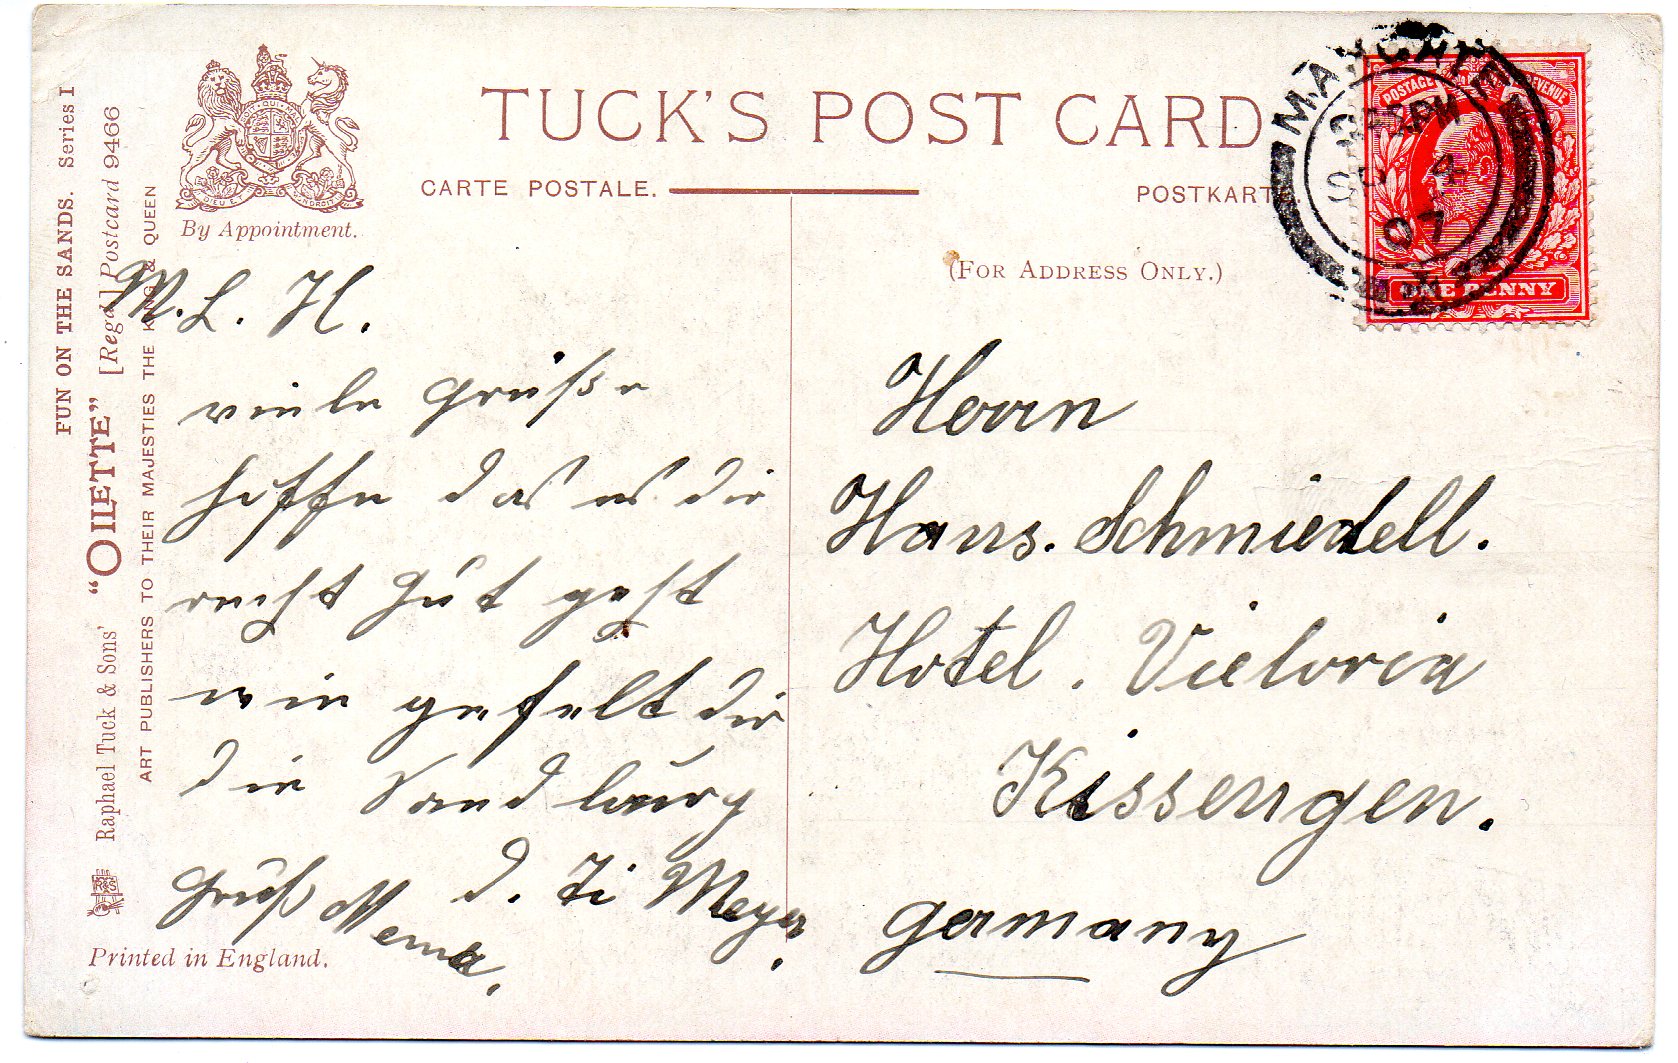 TUCK'S POST CARD
CARTE POSTALE.
POSTKARTE.
By Appointment.
(FOR ADDRESS ONLY.)
FUN ON THE SANDS. Series I
Raphael Tuck & Sons' "OILETTE" [Regd.] Postcard 9466
ART PUBLISHERS TO THEIR MAJESTIES THE KING & QUEEN
Printed in England.
POSTAGE REVENUE
ONE PENNY
MARGATE
PM
4
07
M. L. H.
viele Grüße
hoffe das es dir
recht gut geht
wie gefelt dir
die
Gruß d. Meyer.
Herrn
Hans. Schmiedell.
Hotel. Victoria
Kissengen.
Germany